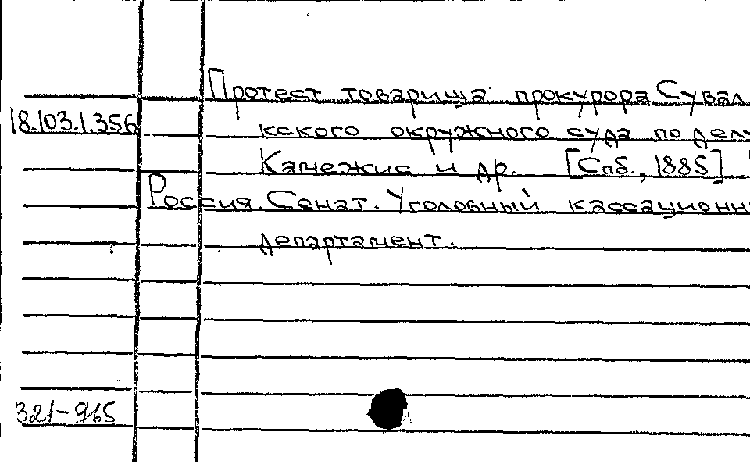 Протест товарища прокурора Сувал
18.103.1.356
кского окружного суда по делу
и др. [Спб., 1885]
Россия. Сенат. Уголовный кассационн
департамент.
321-965